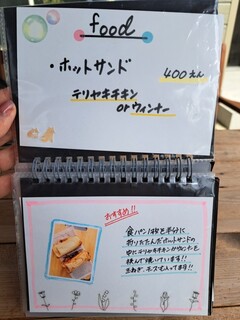 food
・ホットサンド
400えん
テリヤキチキン
orウィンナー
おすすめ!!
食パン1枚を半分に
折りたたんだホットサンドの
中にテリヤキチキンかウィンナーを
挟んで焼いています!!
玉ねぎ、チーズも入ってます!!